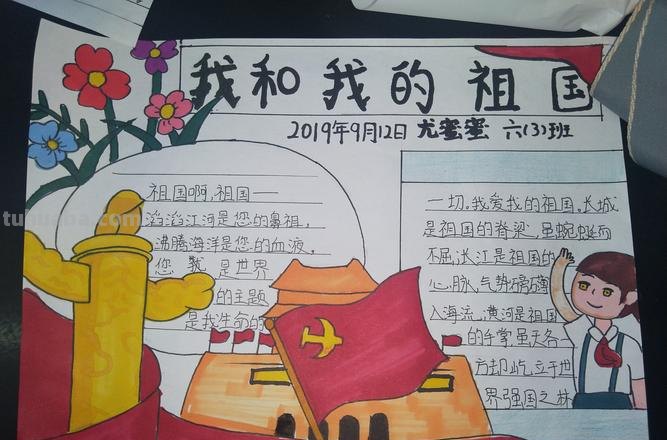 我和我的祖国
2019年9月12日 尤蜜蜜 六(3)班
祖国啊,祖国——
滔滔江河是您的鼻祖,
沸腾海洋是您的血液。
您 就 是世界
的主题
是我生命的
一切,我爱我的祖国,长城
是祖国的脊梁,虽蜿蜒而
不屈,长江是祖国的
心脉,气势磅礴
入海流,黄河是祖国
的手掌,虽天各一
方却屹立于世
界强国之林